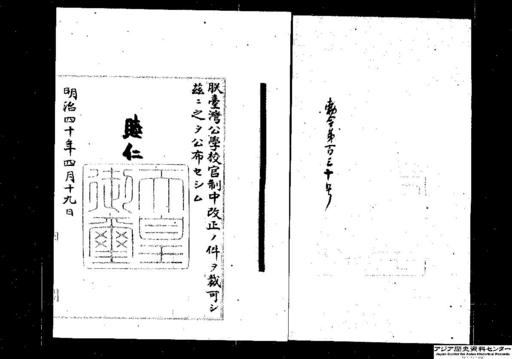 勅令第百三十号
朕臺灣公學校官制中改正ノ件ヲ裁可シ
茲ニ之ヲ公布セシム
睦仁
天皇御璽
明治四十年四月十九日
アジア歴史資料センター
Japan Center for Asian Historical Records